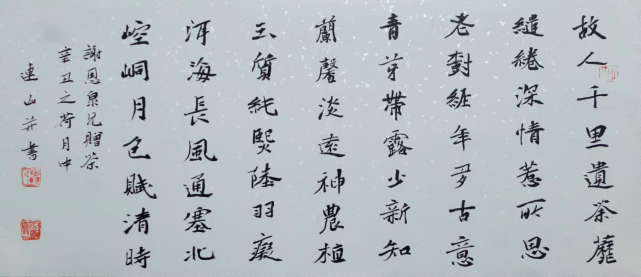 故人千里遺茶蘼
繾綣深情惹所思
老樹經年多古意
青芽帶露少新知
蘭馨淡遠神農植
玉質純熙陸羽癡
洱海長風通塞北
崆峒月色賦清時
謝恩泉兄贈茶
辛丑之荷月中
連山并書